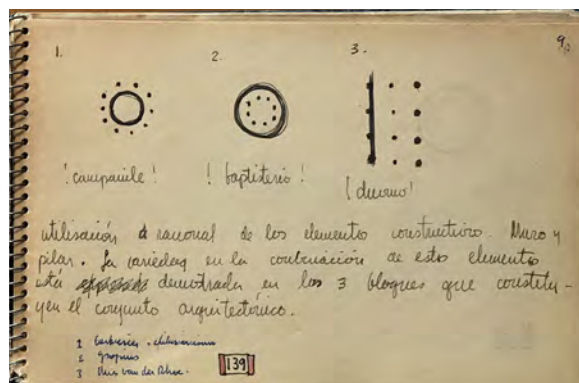 1.
2.
3.
9
¡campanile!
¡baptisterio!
¡duomo!
utilisación racional de los elementos constructivos. Muro y
pilar. La variedad en la combinación de estos elementos
está demostrada en los 3 bloques que constitu-
yen el conjunto arquitectónico.
1
2 Gropius
3 Mies van der Rohe.
139